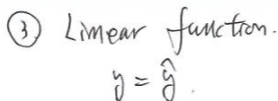 ③ Linear function.
y = ŷ.